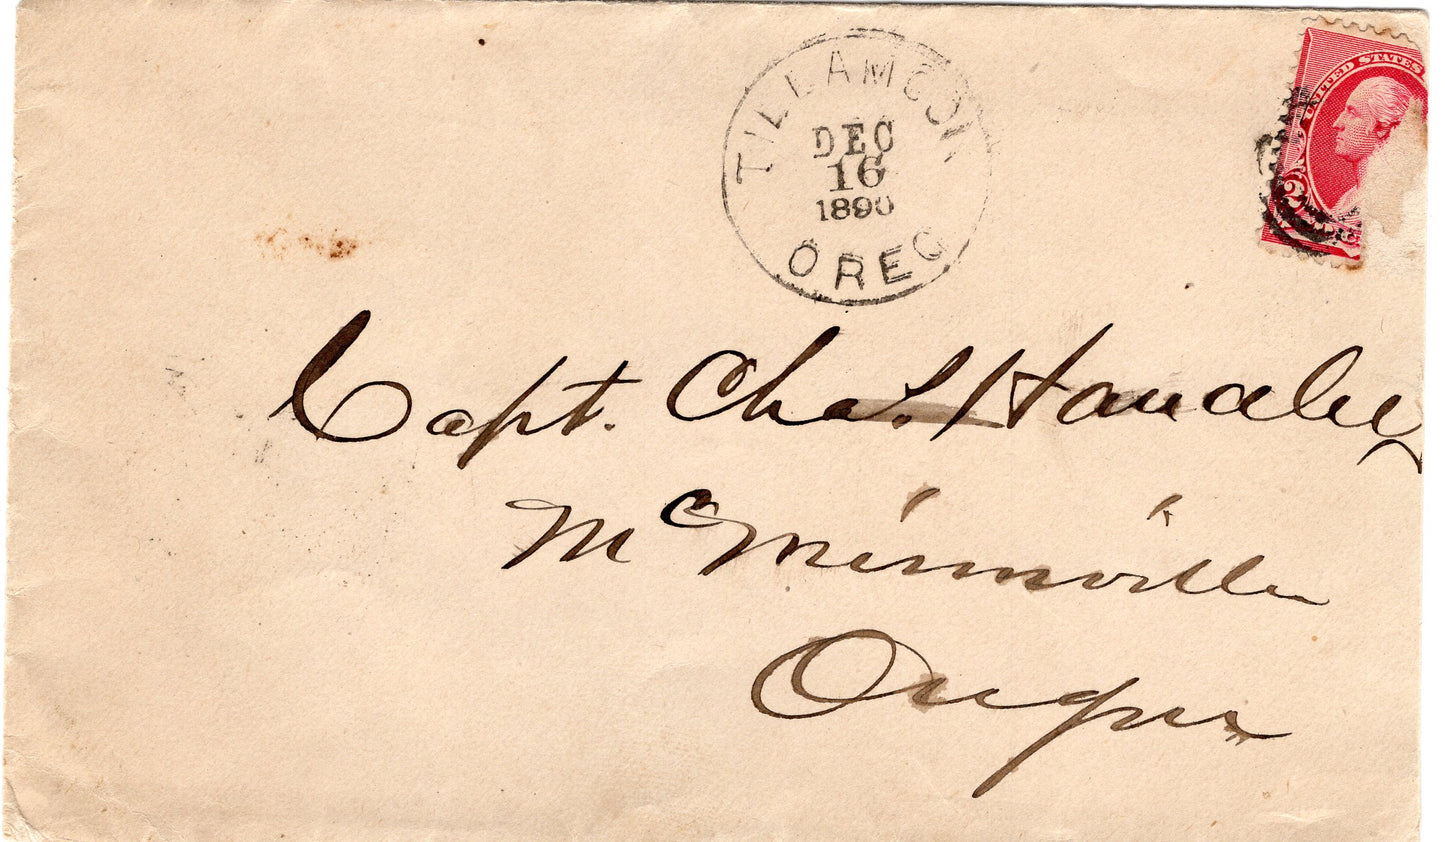 TILLAMOOK
DEC
16
1890
OREG
UNITED STATES
2
Capt. Chas. Handley
McMinnville
Oregon